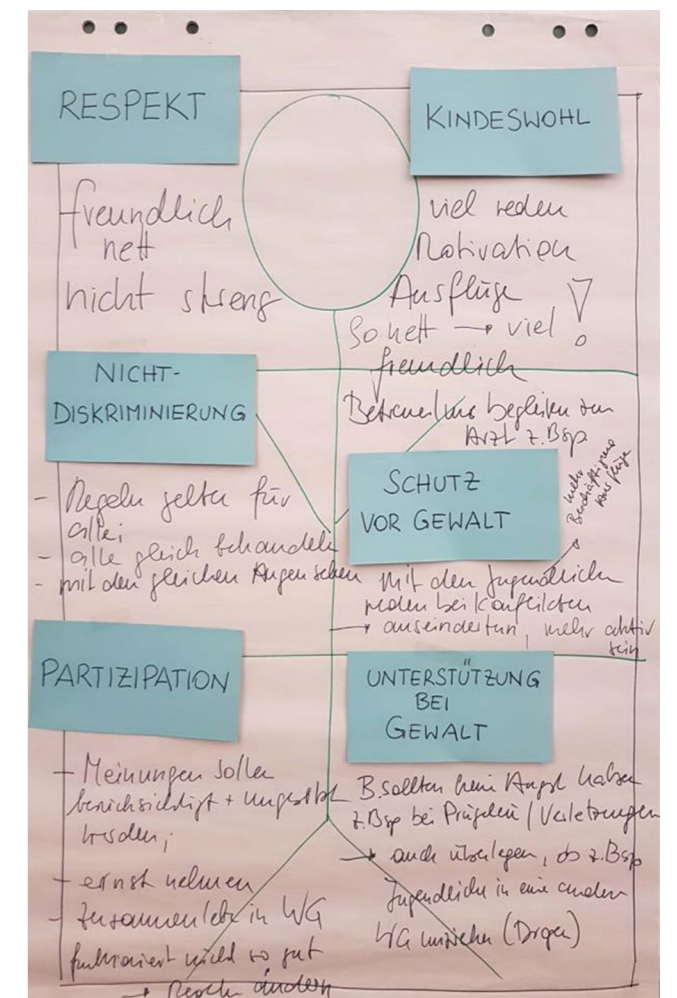 RESPEKT
freundlich
nett
nicht streng
KINDESWOHL
viel reden
Motivation
Ausflüge !
So nett → viel
freundlich
Betreuer uns begleiten zum
Arzt z.Bsp
NICHT-
DISKRIMINIERUNG
- Regeln gelten für
alle;
- alle gleich behandeln
- mit den gleichen Augen sehen
SCHUTZ
VOR GEWALT
mehr
Beschäftigung
Ausflüge
Mit den Jugendlichen
reden bei Konflikten
→ mehr aktiv
sein
PARTIZIPATION
- Meinungen sollen
berücksichtigt + umgesetzt
werden;
- ernst nehmen
- Zusammenleben in WG
funktioniert nicht so gut
→ Regeln ändern
UNTERSTÜTZUNG
BEI
GEWALT
B. sollten keine Angst haben
z.Bsp bei Prügelei / Verletzungen
→ auch überlegen, ob z.Bsp
Jugendliche in eine andere
WG umziehen (Drogen)